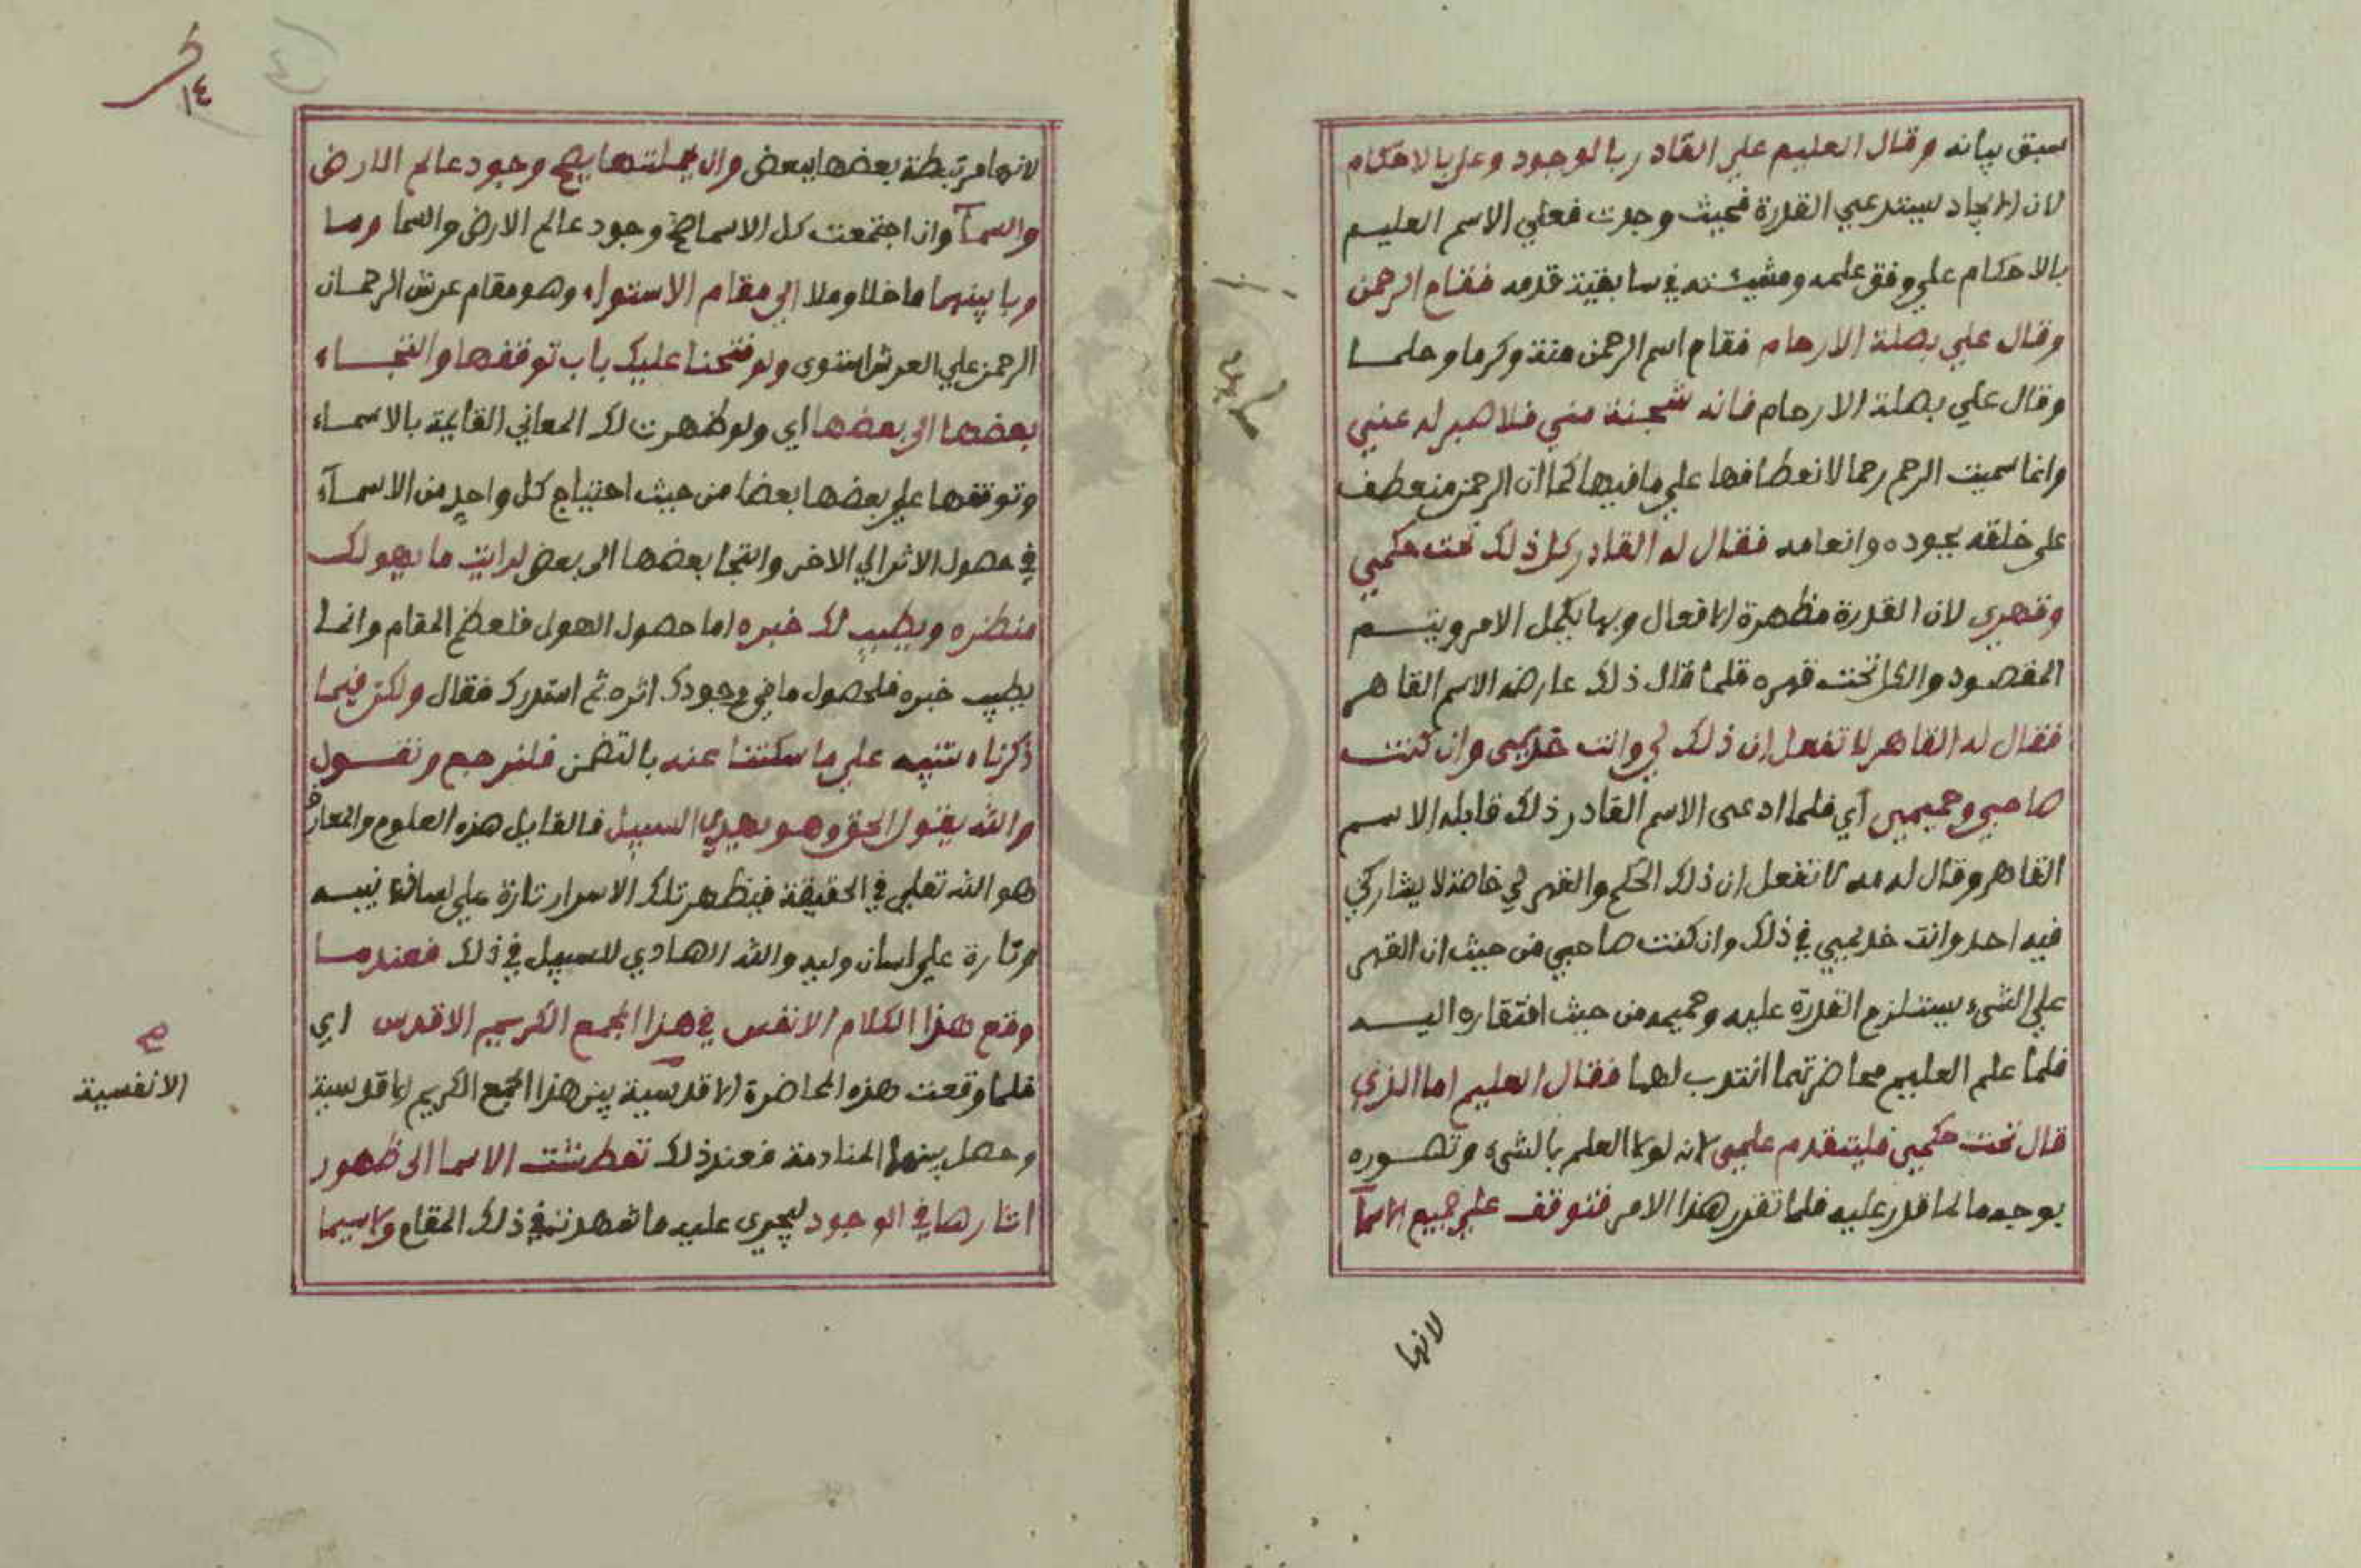 سبق بيانه وقال العليم علي القادر بالوجود وعلي بالاحكام
لان الايجاد يستدعي القدرة فحيث وجدت فعلي الاسم العليم
بالاحكام علي وفق علمه ومشيئته في سابقية قدمه فقام الرحمن
وقال علي بصلة الارحام فقام اسم الرحمن منة وكرما وحلما
وقال علي بصلة الارحام فانه شجنة مني فلا صبر له عني
وانما سميت الرحم رحما لانعطافها علي ما فيها كما ان الرحمن منعطف
على خلقه بجوده وانعامه فقال له القادر كل ذلك تحت حكمي
وقهري لان القدرة مظهرة الافعال وبها يكمل الامر ويتم
المقصود والكل تحت قهره فلما قال ذلك عارضه الاسم القاهر
فقال له القاهر لا تفعل ان ذلك لي وانت خديمي وان كنت
صاحبي وحميمي أي فلما ادعى الاسم القادر ذلك قابله الاسم
القاهر وقال له مه لا تفعل ان ذلك الحكم والقهر لي خاصة لا يشاركني
فيه احد وانت خديمي في ذلك وان كنت صاحبي من حيث ان القهر
علي الشيء يستلزم القدرة عليه وحميمه من حيث افتقاره اليه
فلما علم العليم محاضرتهما انتدب لهما فقال العليم اما الذي
قال تحت حكمي فليتقدم علمي لانه لولا العلم بالشيء وتصوره
بوجه ما لما قدر عليه فلما تقدر هذا الامر فتوقف علي جميع الاسمآ
لانها
١٤
لانها مرتبطة بعضها ببعض وان بجملتها يصح وجود عالم الارض
والسمآ وان اجتمعت كل الاسما صح وجود عالم الارض والسما وما
وما بينهما ما خلا وملا الي مقام الاستواء وهو مقام عرش الرحمان
الرحمن علي العرش استوى ولو فتحنا عليك باب توقفها والتجاء
بعضها الى بعضها اي ولو ظهرت لك المعاني القايمة بالاسماء
وتوقفها علي بعضها بعضا من حيث احتياج كل واحد من الاسمآء
في حصول الاثر الي الاخر والتجا بعضها الى بعض لرايت ما يهولك
منظره ويطيب لك خبره اما حصول الهول فلعظم المقام وانما
يطيب خبره فلحصول ما في وجودك اثره ثم استدرك فقال ولكن فيما
ذكرناه تنبيه علي ما سكتنا عنه بالتضمن فلنرجع ونقول
والله يقول الحق وهو يهدي السبيل فالقايل هذه العلوم والمعارف
هو الله تعلي في الحقيقة فيظهر تلك الاسرار تارة علي لسان نبيه
وتارة علي لسان وليه والله الهادي للسبيل في ذلك فعندما
وقع هذا الكلام الانفس في هذا الجمع الكريم الاقدس اي
فلما وقعت هذه المحاضرة الاقدسية بين هذا الجمع الكريم الاقدسية
الانفسية
وحصل بينها المنادمة فعند ذلك تعطشت الاسما الى ظهور
اثارها في الوجود ليجري عليه ما شهدته في ذلك المقام ولاسيما